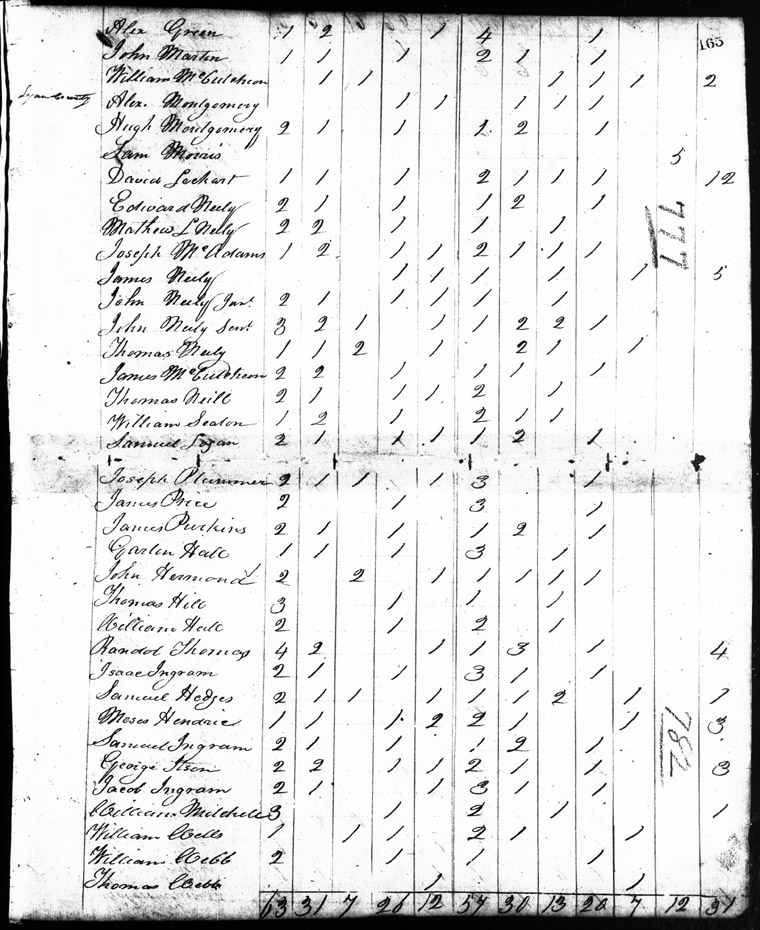 165
Logan County
Alex Green 1 2 1 4 1
John Martin 1 1 1 2 1 1
William McCutcheon 1 1 1 1 1 2
Alex. Montgomery 1 1 1 1 1
Hugh Montgomery 2 1 1 1 2 1
Sam Morris 5
David Lockart 1 1 1 2 1 1 1 12
Edward Neily 2 1 1 1 2 1
Mathew L Neily 2 2 1 1 1
777
Joseph McAdams 1 2 1 1 2 1 1 1
James Neily 1 1 1 1 1 5
John Neily Junr. 2 1 1 1 1 1
John Neily Senr 3 2 1 1 1 2 2 1
Thomas Neily 1 1 2 1 2 1 1
James McCutcheon 2 2 1 1 1 1
Thomas Neill 2 1 1 1 2 1
William Seaton 1 2 1 2 1 1
Samuel Logan 2 1 1 1 1 2 1
Joseph Plummer 2 1 1 1 3 1
James Price 2 1 3 1
James Purkins 2 1 1 1 2 1
Garlin Hall 1 1 1 3 1
John Hermond 2 2 1 1 1 1 1
Thomas Hill 3 1 1 1
William Hall 2 1 2 1
Randol Thomas 4 2 1 1 3 1 4
Isaac Ingram 2 1 1 3 1 1
Samuel Hedges 2 1 1 1 1 1 2 1 1
Moses Hendric 1 1 1 2 2 1 1 3
Samuel Ingram 2 1 1 1 2 1
782
George 2 2 1 1 2 1 1 3
Jacob Ingram 2 1 1 1 3 1 1
William Mitchell 3 1 2 1 1
William Wells 1 1 1 2 1 1
William Webb 2 1 1 1
Thomas Webb 1 1
63 31 7 26 12 57 30 13 20 7 12 31